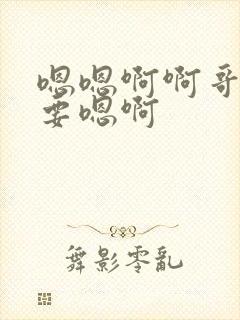 嗯嗯啊啊哥
要嗯啊
舞影零亂